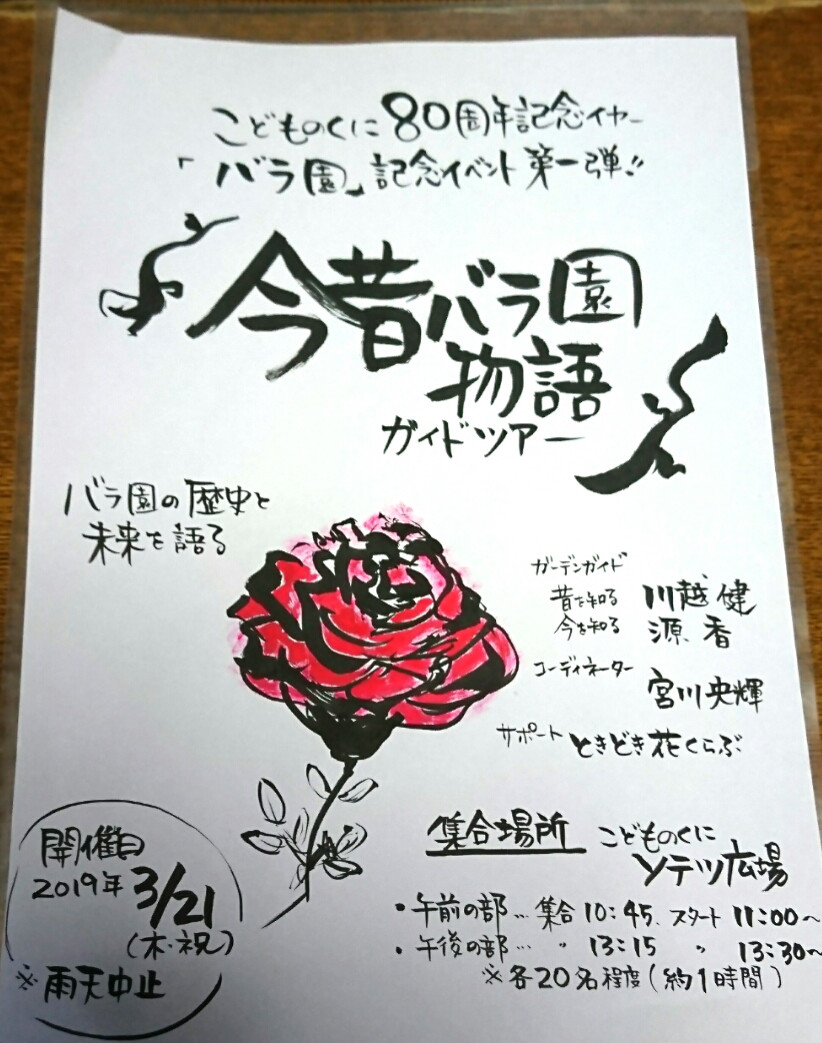 こどものくに80周年記念イヤー
「バラ園」記念イベント第一弾!!
今昔バラ園
物語
ガイドツアー
バラ園の歴史と
未来を語る
ガーデンガイド
昔を知る 川越健
今を知る 源 香
コーディネーター
宮川央輝
サポート ときどき花くらぶ
開催日
2019年 3/21
(木・祝)
※雨天中止
集合場所 こどものくに
ソテツ広場
・午前の部… 集合 10:45 スタート 11:00〜
・午後の部… 〃 13:15 〃 13:30〜
※各20名程度(約1時間)